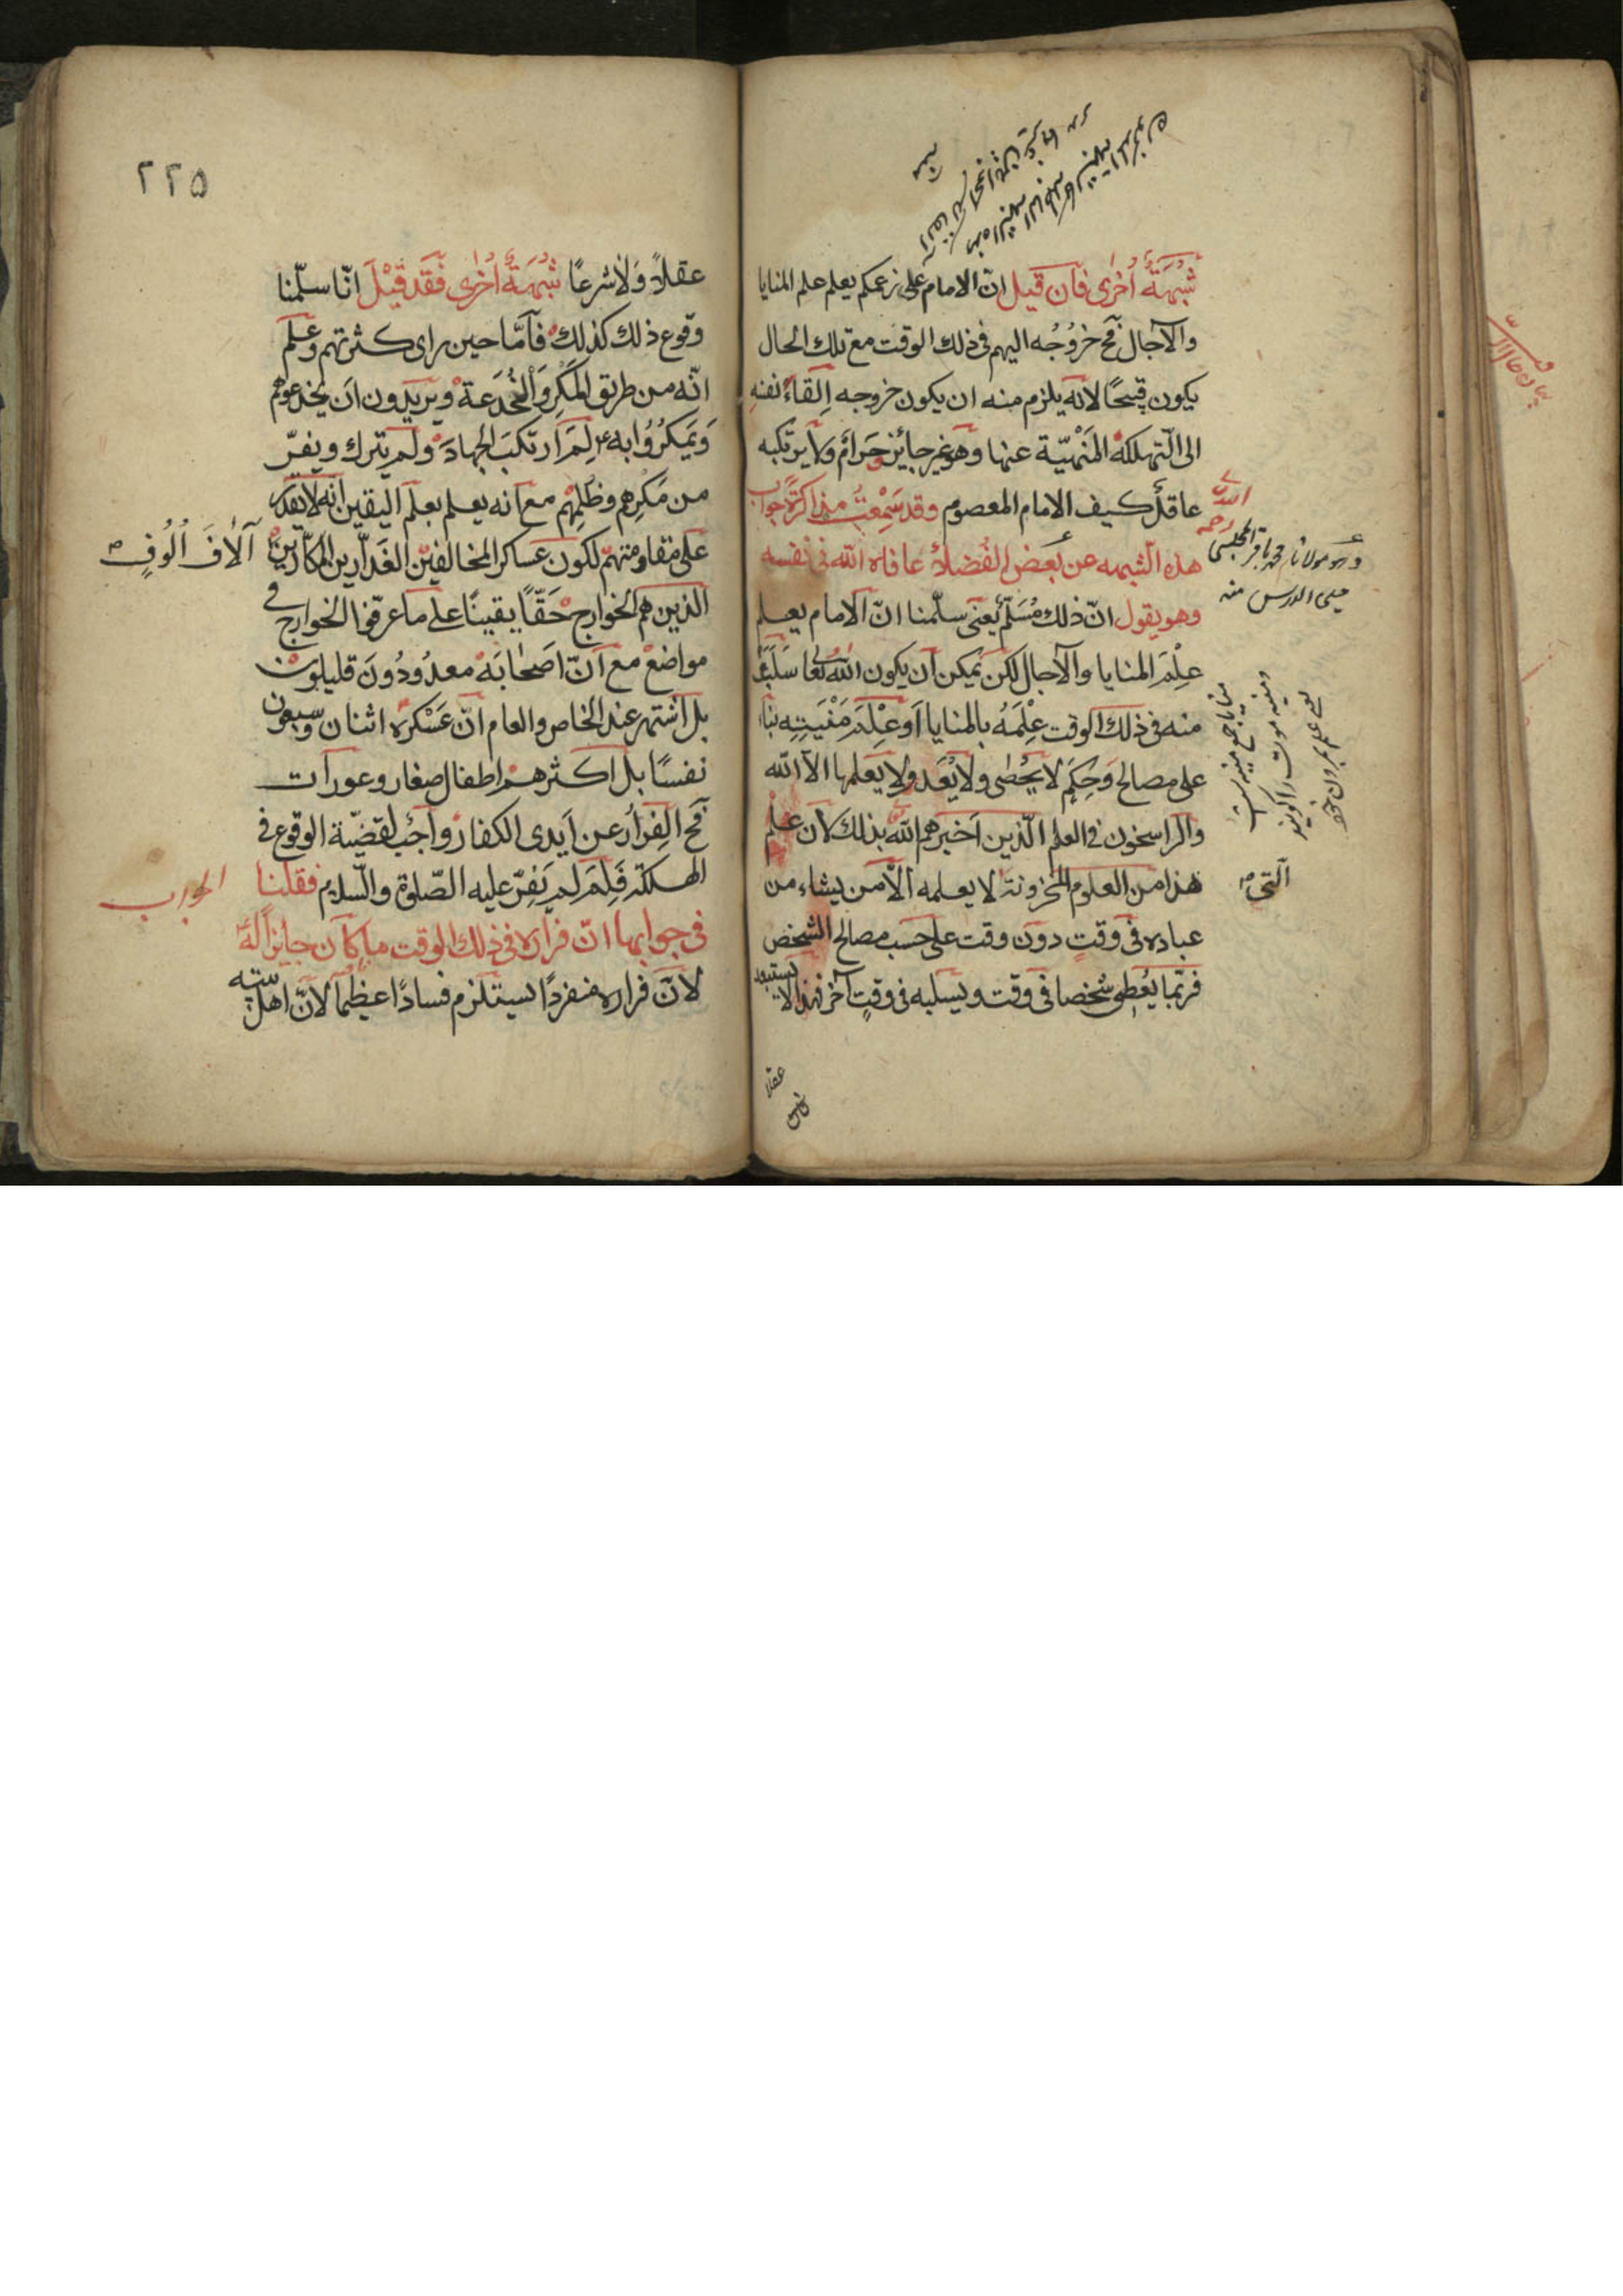 شُبْهَةٌ أُخْرى فان قيل انّ الامام على زعمكم يعلم علم المنايا
والآجال فح خروُجُه اليهم فى ذلك الوقت مع تلك الحال
يكون قبيحًا لانه يلزم منه ان يكون خروجه اِلقاءَ نفسِهِ
الى التّهلكة المَنْهيّة عنها وهو غير جائز وحَرامٌ ولا يرتكبه
عاقلٌ كيف الامام المعصوم وقد سَمِعْتُ مذاكرةً جواب
هذه الشبهه عن بَعض الفُضلاءُ عافاه الله فى نفسه
وهو يقول انّ ذلك مُسَلّمٌ يَعنى سلّمنا انّ الامام يعلم
عِلْمَ المنايا والآجال لكن يُمكن ان يكون الله تعا سَلَبَ
منه فى ذلك الوقت عِلْمَهُ بالمنايا اَو عِلْمَ مَنْيَتِهِ بناءً
على مصالح وَحِكَمٍ لا يحُصٰى ولا يُعَد ولا يعلمها الا الله
والراسخون فى العلم الّذين اَخبرهم الله بذلك لان علم
هذا من العلوم المخزونة لا يعلمه الّا من يشاء من
عباده فى وقتٍ دون وقت على حسب مصالح الشخص
فربّما يُعْطِى شخصا فى وقت ويسلبه فى وقتٍ آخر فهذا لا يستبعد
رحمه الله
وهو مولانا محمد باقر المجلسى
فى الدرس منه
منايا جمع منيه است
ومنيه موت را گويند
يعنى علم مردن خود
الّتى
عقلا
٢٢٥
عقلاً وَلا شرعًا شُبْهَةٌ أُخْرى فَقَد قِيْلَ انّا سلّمنا
وقوع ذلك كذلك فاَمّا حين راى كثرتهم وعلم
انّه من طريق المَكرِ وَالخُدعَة ويريدون اَن يخدعوهُ
وَيَمكرُوُا به لِمَ ارتكبَ الجهادَ ولم يترك ويفرّ
من مَكرِهم وظُلِمهم مع انه يعلم بعلم اليقين انه لا يقدر
على مقاومتهم لكون عساكر المخالفين الغَدّارين المكّارين
آلافَ اُلُوفٍ
الذين هم الخوارج حَقّاً يقينًا على ما عرّفوا الخوارج فى
مواضع مع انّ اَصحابَهُ معدُودُونَ قليلون
بل اشتهر عند الخاص والعام انّ عَسْكره اثنان وسبعون
نفسًا بل اكثرهم اطفال صغار وعورات
فح الفِرارُ عن اَيدى الكفار واجبٌ لقضيّة الوقوع فى
الهلكة فَلِمَ لم يَفِرّ عليه الصّلوة والسّلام فقلنا
الجواب
فى جوابها انّ فراره فى ذلك الوقت ما كان جايزًا لهُ
لانّ فراره منفردًا يستلزم فسادًا عظيمًا لانّ اهل بيته